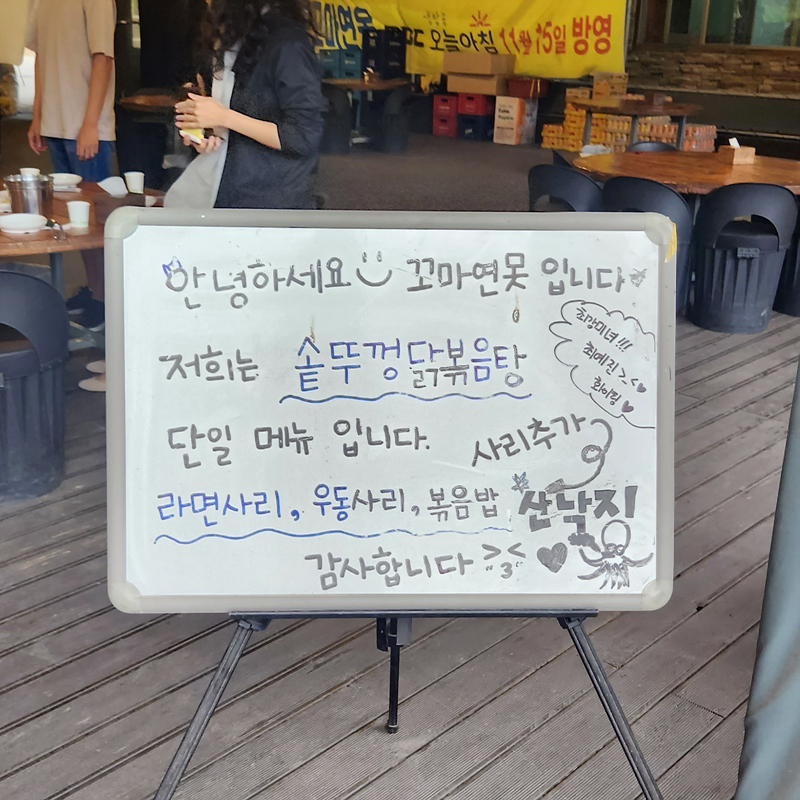 오늘아침 11월 15일 방영
안녕하세요 꼬마연못 입니다
최강미녀!!!
최예진 >_<♥
화이팅 ♥
저희는 솥뚜껑닭볶음탕
단일 메뉴 입니다.
사리추가
라면사리, 우동사리, 볶음밥 산낙지
감사합니다 >3< ♥